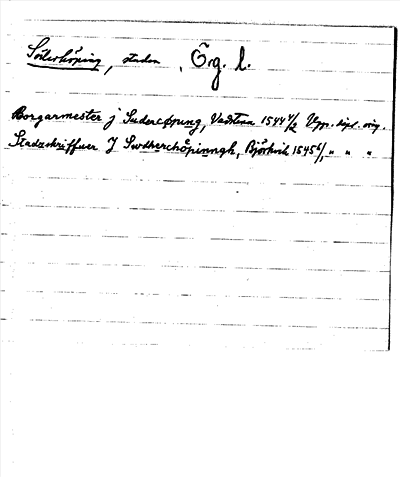 Söderköping, staden, Ög. l.
Borgarmester j Sudercøpung, Vadstena 1544 4/2 Upp. dipl. orig.
Stadzskriffuer J Swdherchöpinngh, Björkvik 1545 6/1 " " "